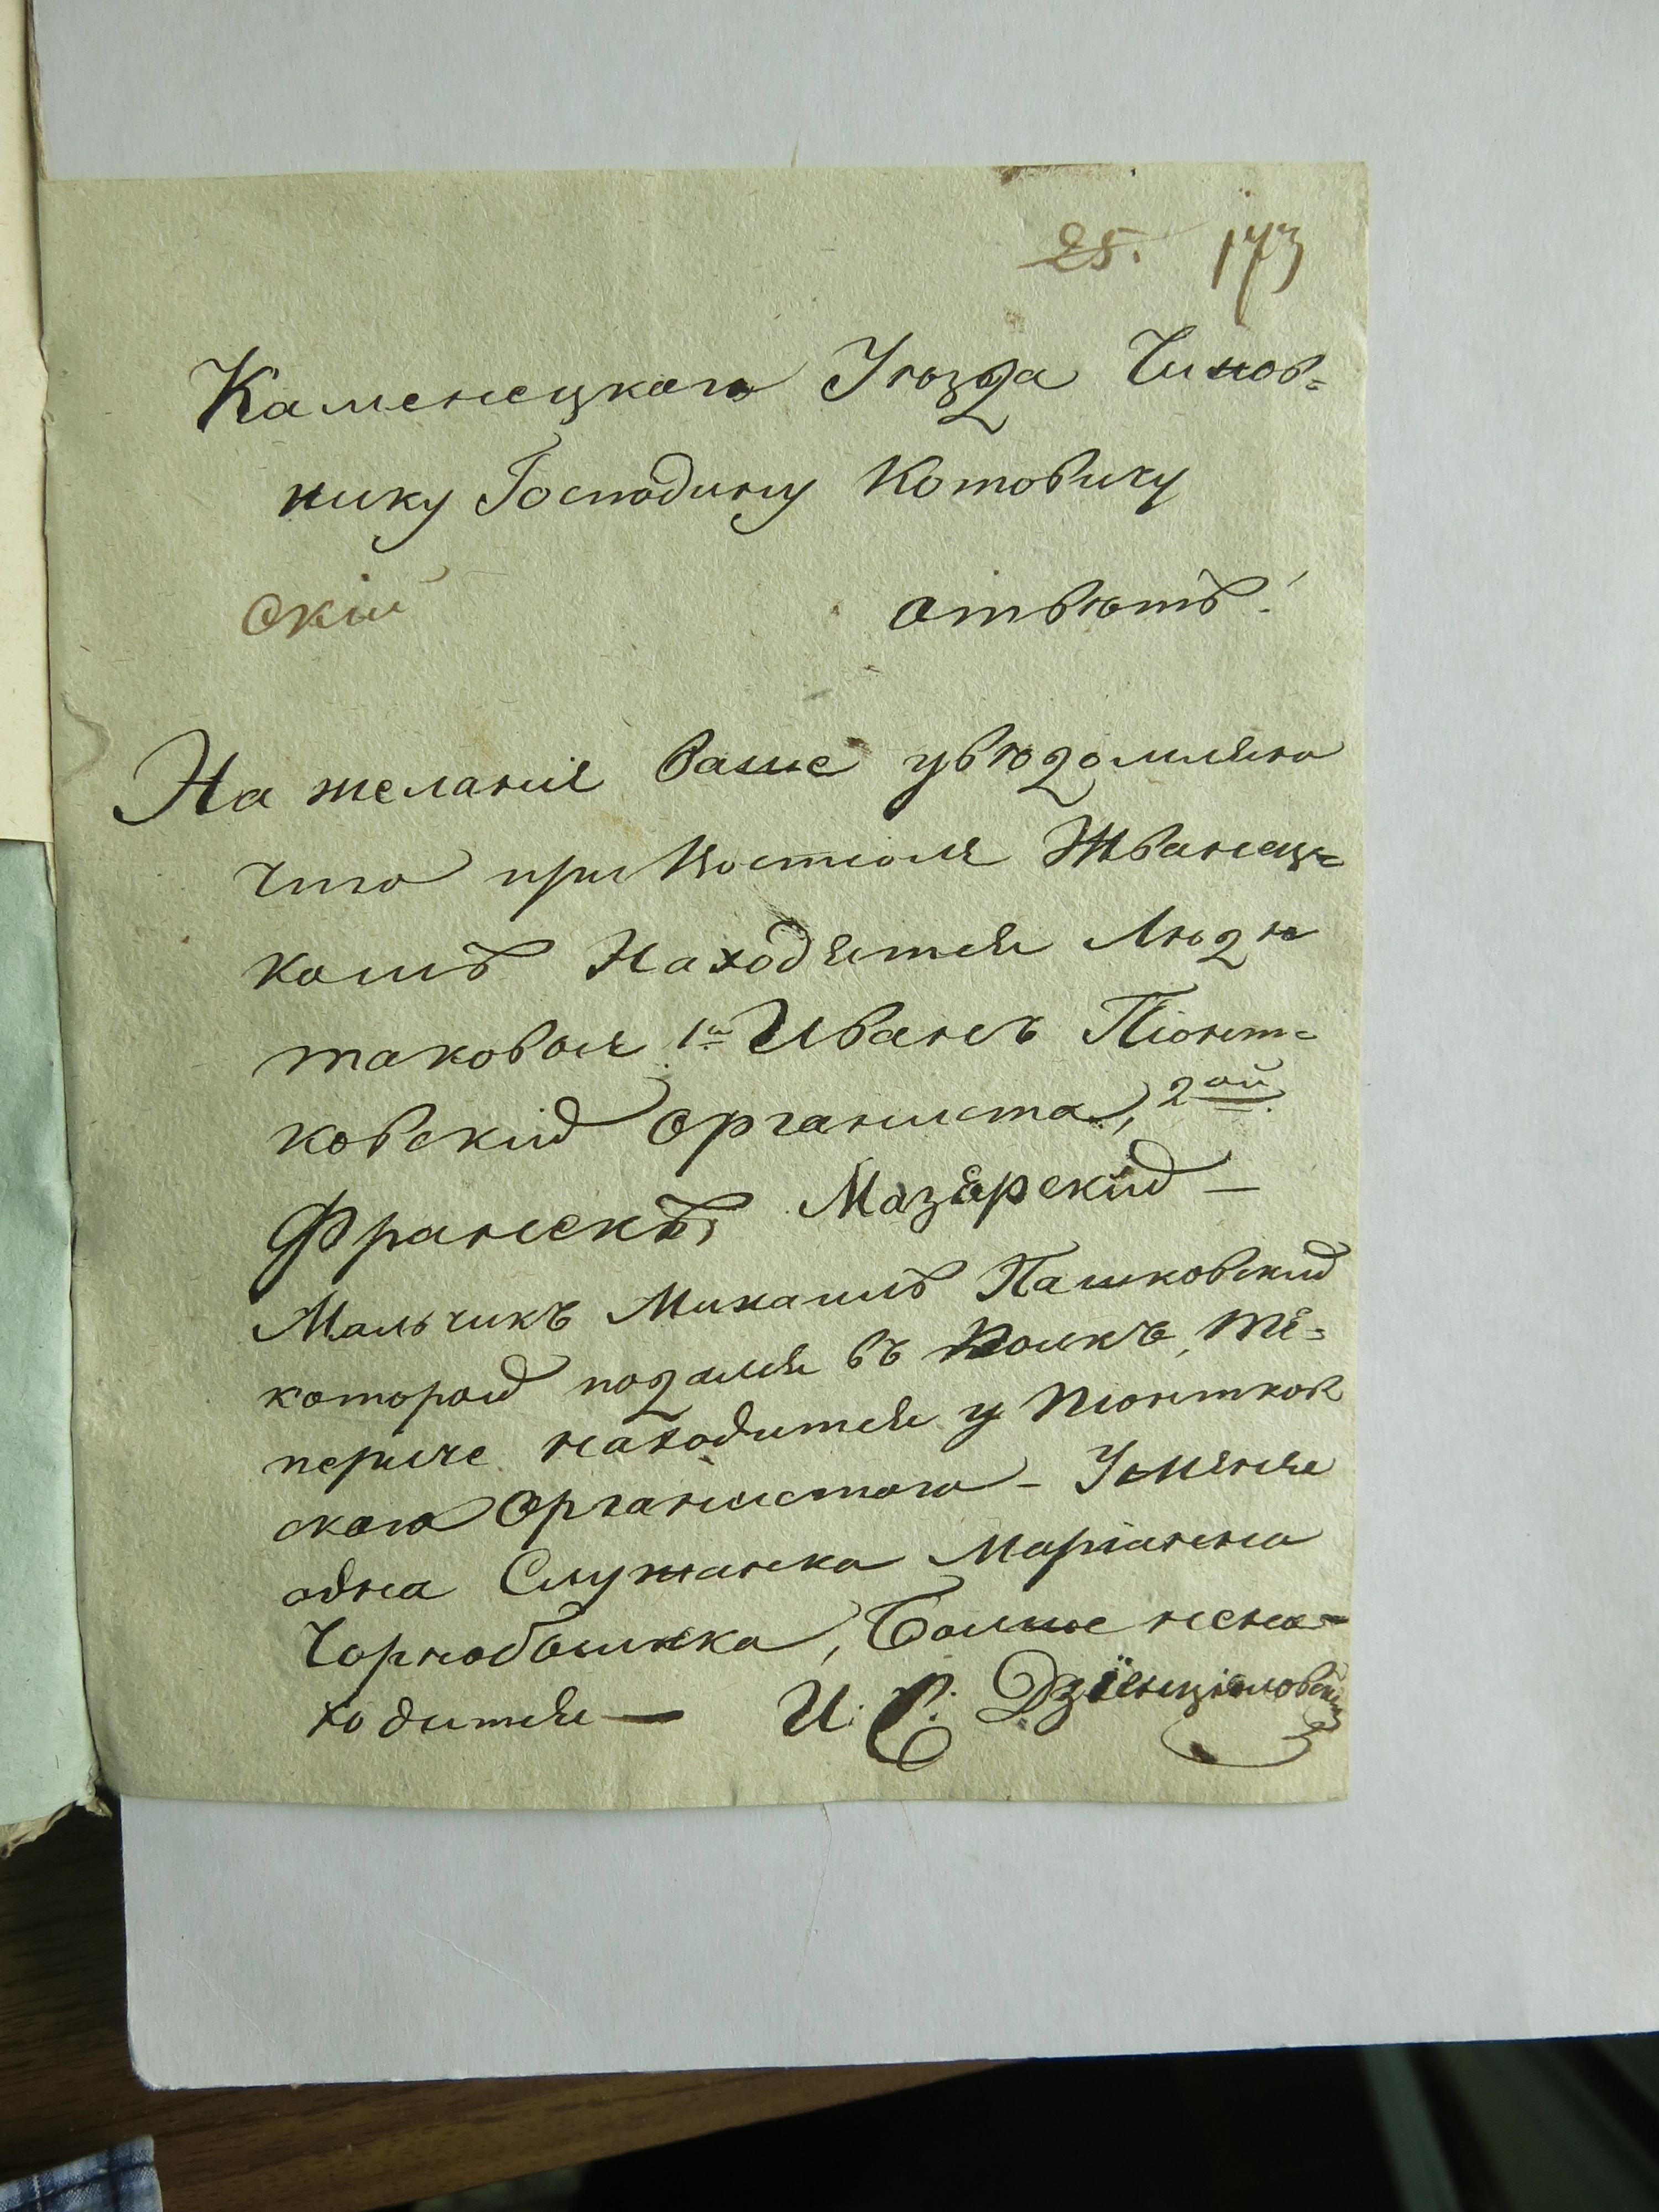 25. 173
Каменецкаго Уѣзда Чинов=
нику Господину Котовичу
Окій отвѣтъ!
На желаніе Ваше увѣдомляю
что при Костіолѣ Жванец=
комъ Находятся Людѣ
таковыя 1й Иванъ Піонт=
ковскій Органиста, 2ой
Францекъ, Мазярскій —
Мальчикъ Михаилъ Пашковскій
который подался въ Полкъ, те=
периче находится у Піонтков
скаго Органистаго — У меня
одна Служанка Маріанна
Чорнобылка, Больше нена=
ходится — И. С. Дзіенціоловскій